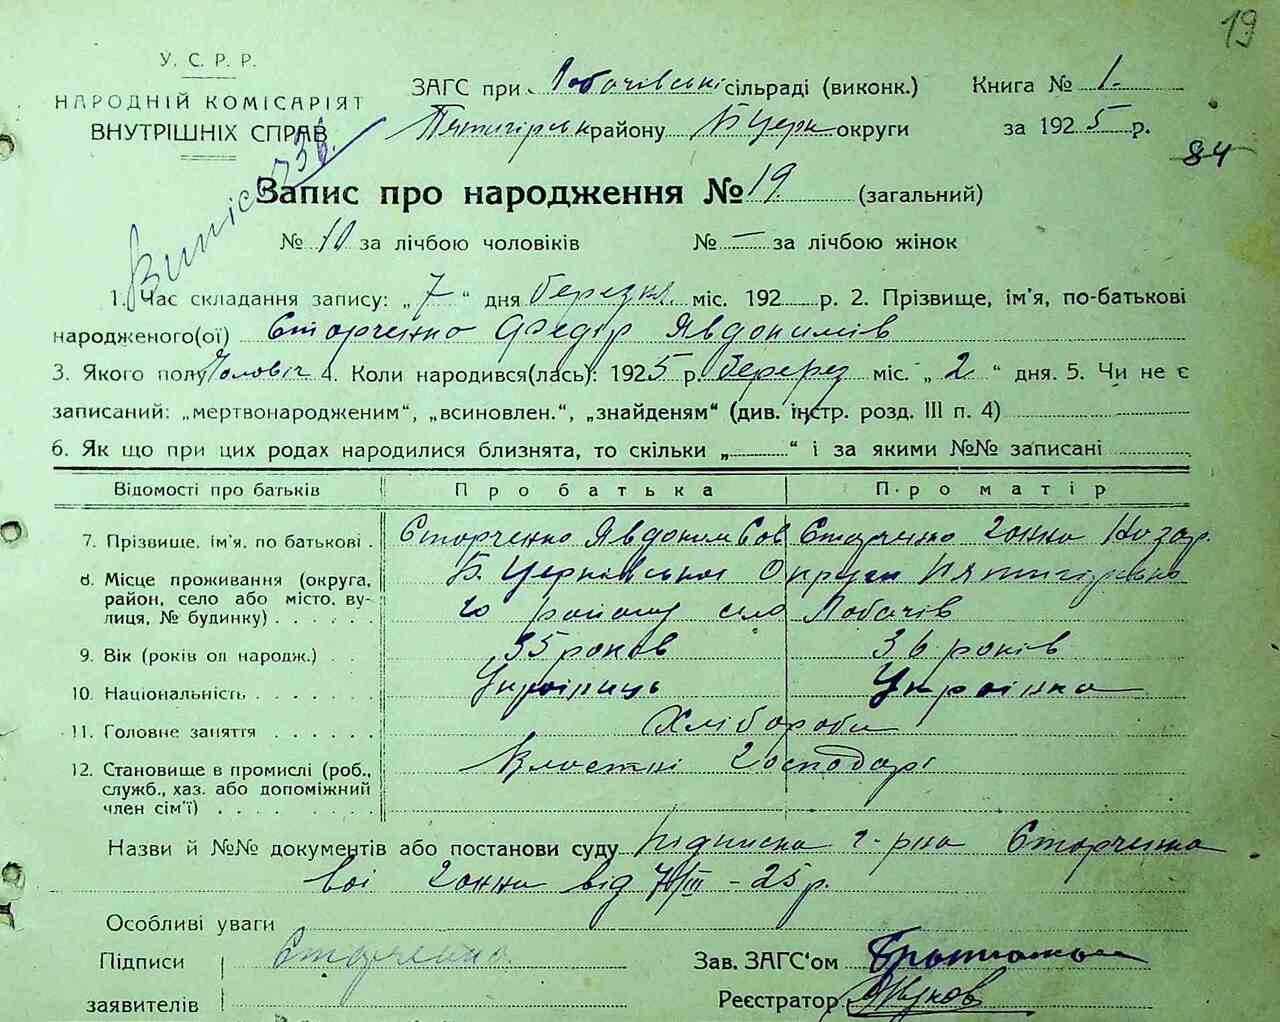 19
У. С. Р. Р.
НАРОДНІЙ КОМІСАРІЯТ
ВНУТРІШНІХ СПРАВ
ЗАГС при Лобачівські сільраді (виконк.) Книга № 1
Пятигірськ району Б Церк округи за 1925 р.
84
Запис про народження № 19 (загальний)
№ 10 за лічбою чоловіків № — за лічбою жінок
1. Час складання запису: „ 7 “ дня березня міс. 192 р. 2. Прізвище, ім'я, по-батькові
народженого(ої) Сторченко Федір Явдокимів
3. Якого полу Чоловіч 4. Коли народився(лась): 1925 р. міс. „ 2 “ дня. 5. Чи не є
записаний: „мертвонародженим“, „всиновлен.“, „знайденям“ (див. інстр. розд. III п. 4)
6. Як що при цих родах народилися близнята, то скільки „ “ і за якими №№ записані
Відомості про батьків Про батька Про матір
7. Прізвище, ім'я, по батькові . Сторченко Явдоким Сторченко Ганна Назар.
8. Місце проживання (округа, район, село або місто, вулиця, № будинку) . . . . . . Б. Церківської Округи Пятигірсько
го району село Лобачів
9. Вік (років од народж.) . . 35 років 36 років
10. Національність . . . . . . Українець Українка
11. Головне заняття . . . . . . Хлібороби
12. Становище в промислі (роб., служб., хаз. або допоміжний член сім'ї) . . . . . . Власні Господарі
Назви й №№ документів або постанови суду Підписка г-рна Сторченко
вої Ганни від 7/III - 25 р.
Особливі уваги
Підписи Сторченко Зав. ЗАГС'ом
заявителів Реєстратор